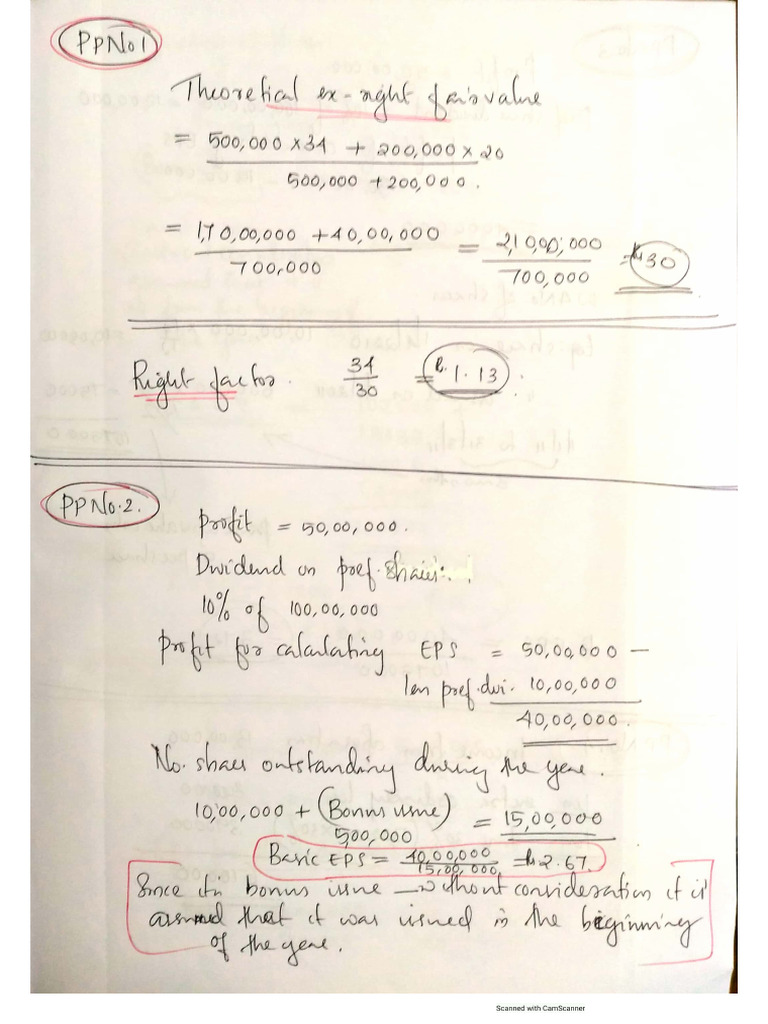 PPNo1
Theoretical ex-right fair value
= 500,000 x 34 + 200,000 x 20
500,000 + 200,000.
= 1,70,00,000 + 40,00,000 = 2,10,00,000 = R 30
700,000 700,000
Right factor. 34/30 = R. 1.13
PPNo.2.
Profit = 50,00,000.
Dividend on pref. shares:
10% of 100,00,000
Profit for calculating EPS = 50,00,000 —
less pref. divi. 10,00,000
40,00,000.
No. shares outstanding during the year.
10,00,000 + (Bonus issue) = 15,00,000
500,000
Basic EPS = 40,00,000 / 15,00,000. = R 2.67.
Since it is bonus issue — without consideration it is
assumed that it was issued in the beginning
of the year.
Scanned with CamScanner